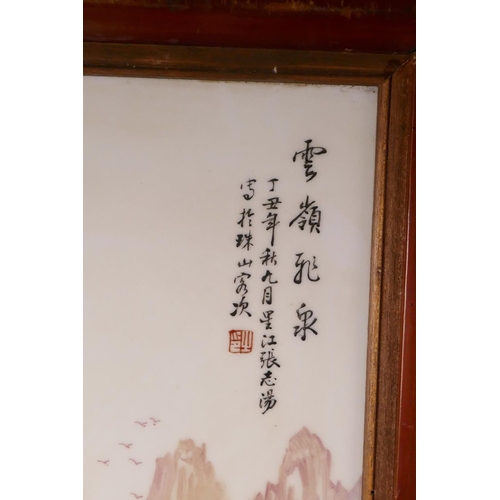 雲嶺飛泉
丁丑年秋九月星江張志湯
寫於珠山客次